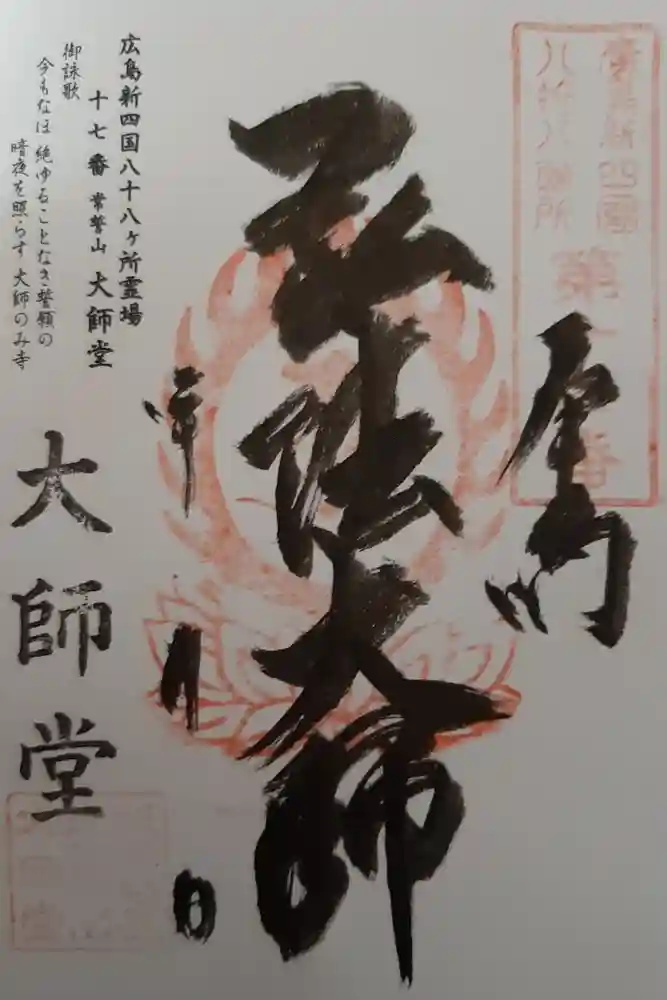 廣島新四國
八拾八ヶ所
第
番
弘法大師
年
月
日
広島新四国八十八ヶ所霊場
十七番 常誓山 大師堂
御詠歌
今もなほ 絶ゆることなき誓願の
暗夜を照らす 大師のみ寺
大師堂